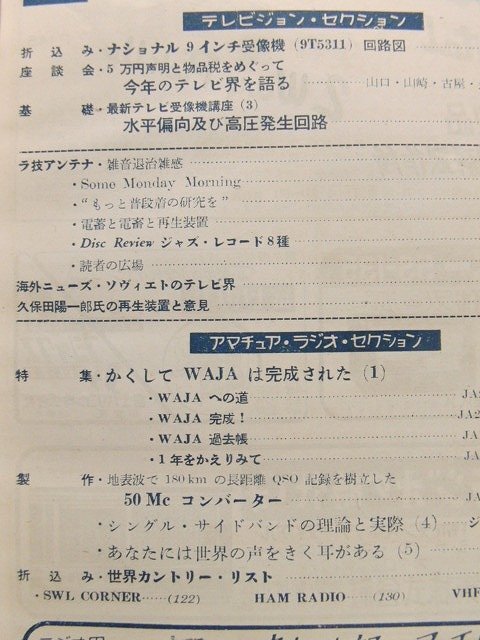 テレビジョン・セクション
折込み・ナショナル 9 インチ受像機 (9T5311) 回路図
座談会・5 万円声明と物品税をめぐって
今年のテレビ界を語る 山口・山崎・古屋・
基礎・最新テレビ受像機講座 (3)
水平偏向及び高圧発生回路
ラ技アンテナ・雑音退治雑感
・Some Monday Morning
・“もっと普段着の研究を”
・電蓄と電蓄と再生装置
・Disc Review ジャズ・レコード8種
・読者の広場
海外ニューズ・ソヴィエトのテレビ界
久保田陽一郎氏の再生装置と意見
アマチュア・ラジオ・セクション
特集・かくして WAJA は完成された (1)
・WAJA への道 JA
・WAJA 完成! JA2
・WAJA 過去帳 JA
・1 年をかえりみて JA
製作・地表波で 180km の長距離 QSO 記録を樹立した
50 Mc コンバーター
・シングル・サイドバンドの理論と実際 (4) ジ
・あなたには世界の声をきく耳がある (5)
折込み・世界カントリー・リスト
・SWL CORNER……(122) HAM RADIO……(130) VHF